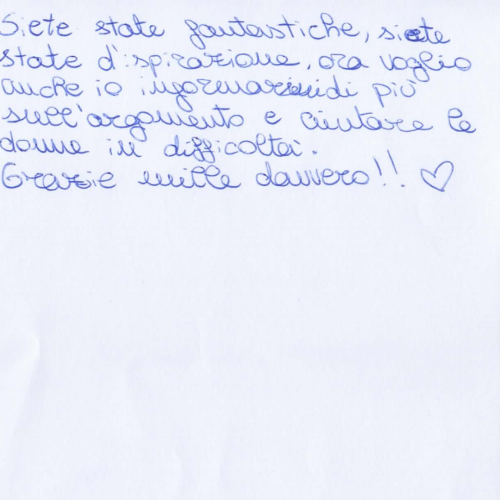 Siete state fantastiche, siete
state d'ispirazione, ora voglio
anche io informarmi di più
sull'argomento e aiutare le
donne in difficoltà.
Grazie mille davvero!! ♡